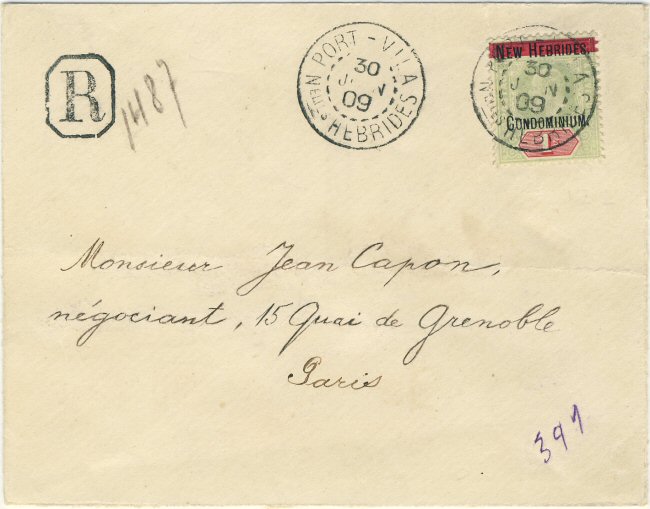 R
1487
PORT-VILA
30
JUIN
09
Nelles HEBRIDES
NEW HEBRIDES.
30
09
CONDOMINIUM.
Monsieur Jean Capon,
négociant, 15 Quai de Grenoble
Paris
397